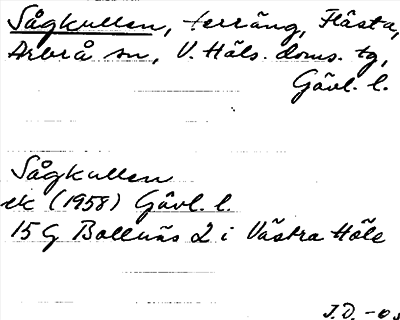 Sågkullen, terräng, Flästa,
Arbrå sn, V. Häls. doms. tg,
Gävl. l.
Sågkullen
ek (1958) Gävl. l.
15 G Bollnäs 2 i Västra Häls
J.D. -0